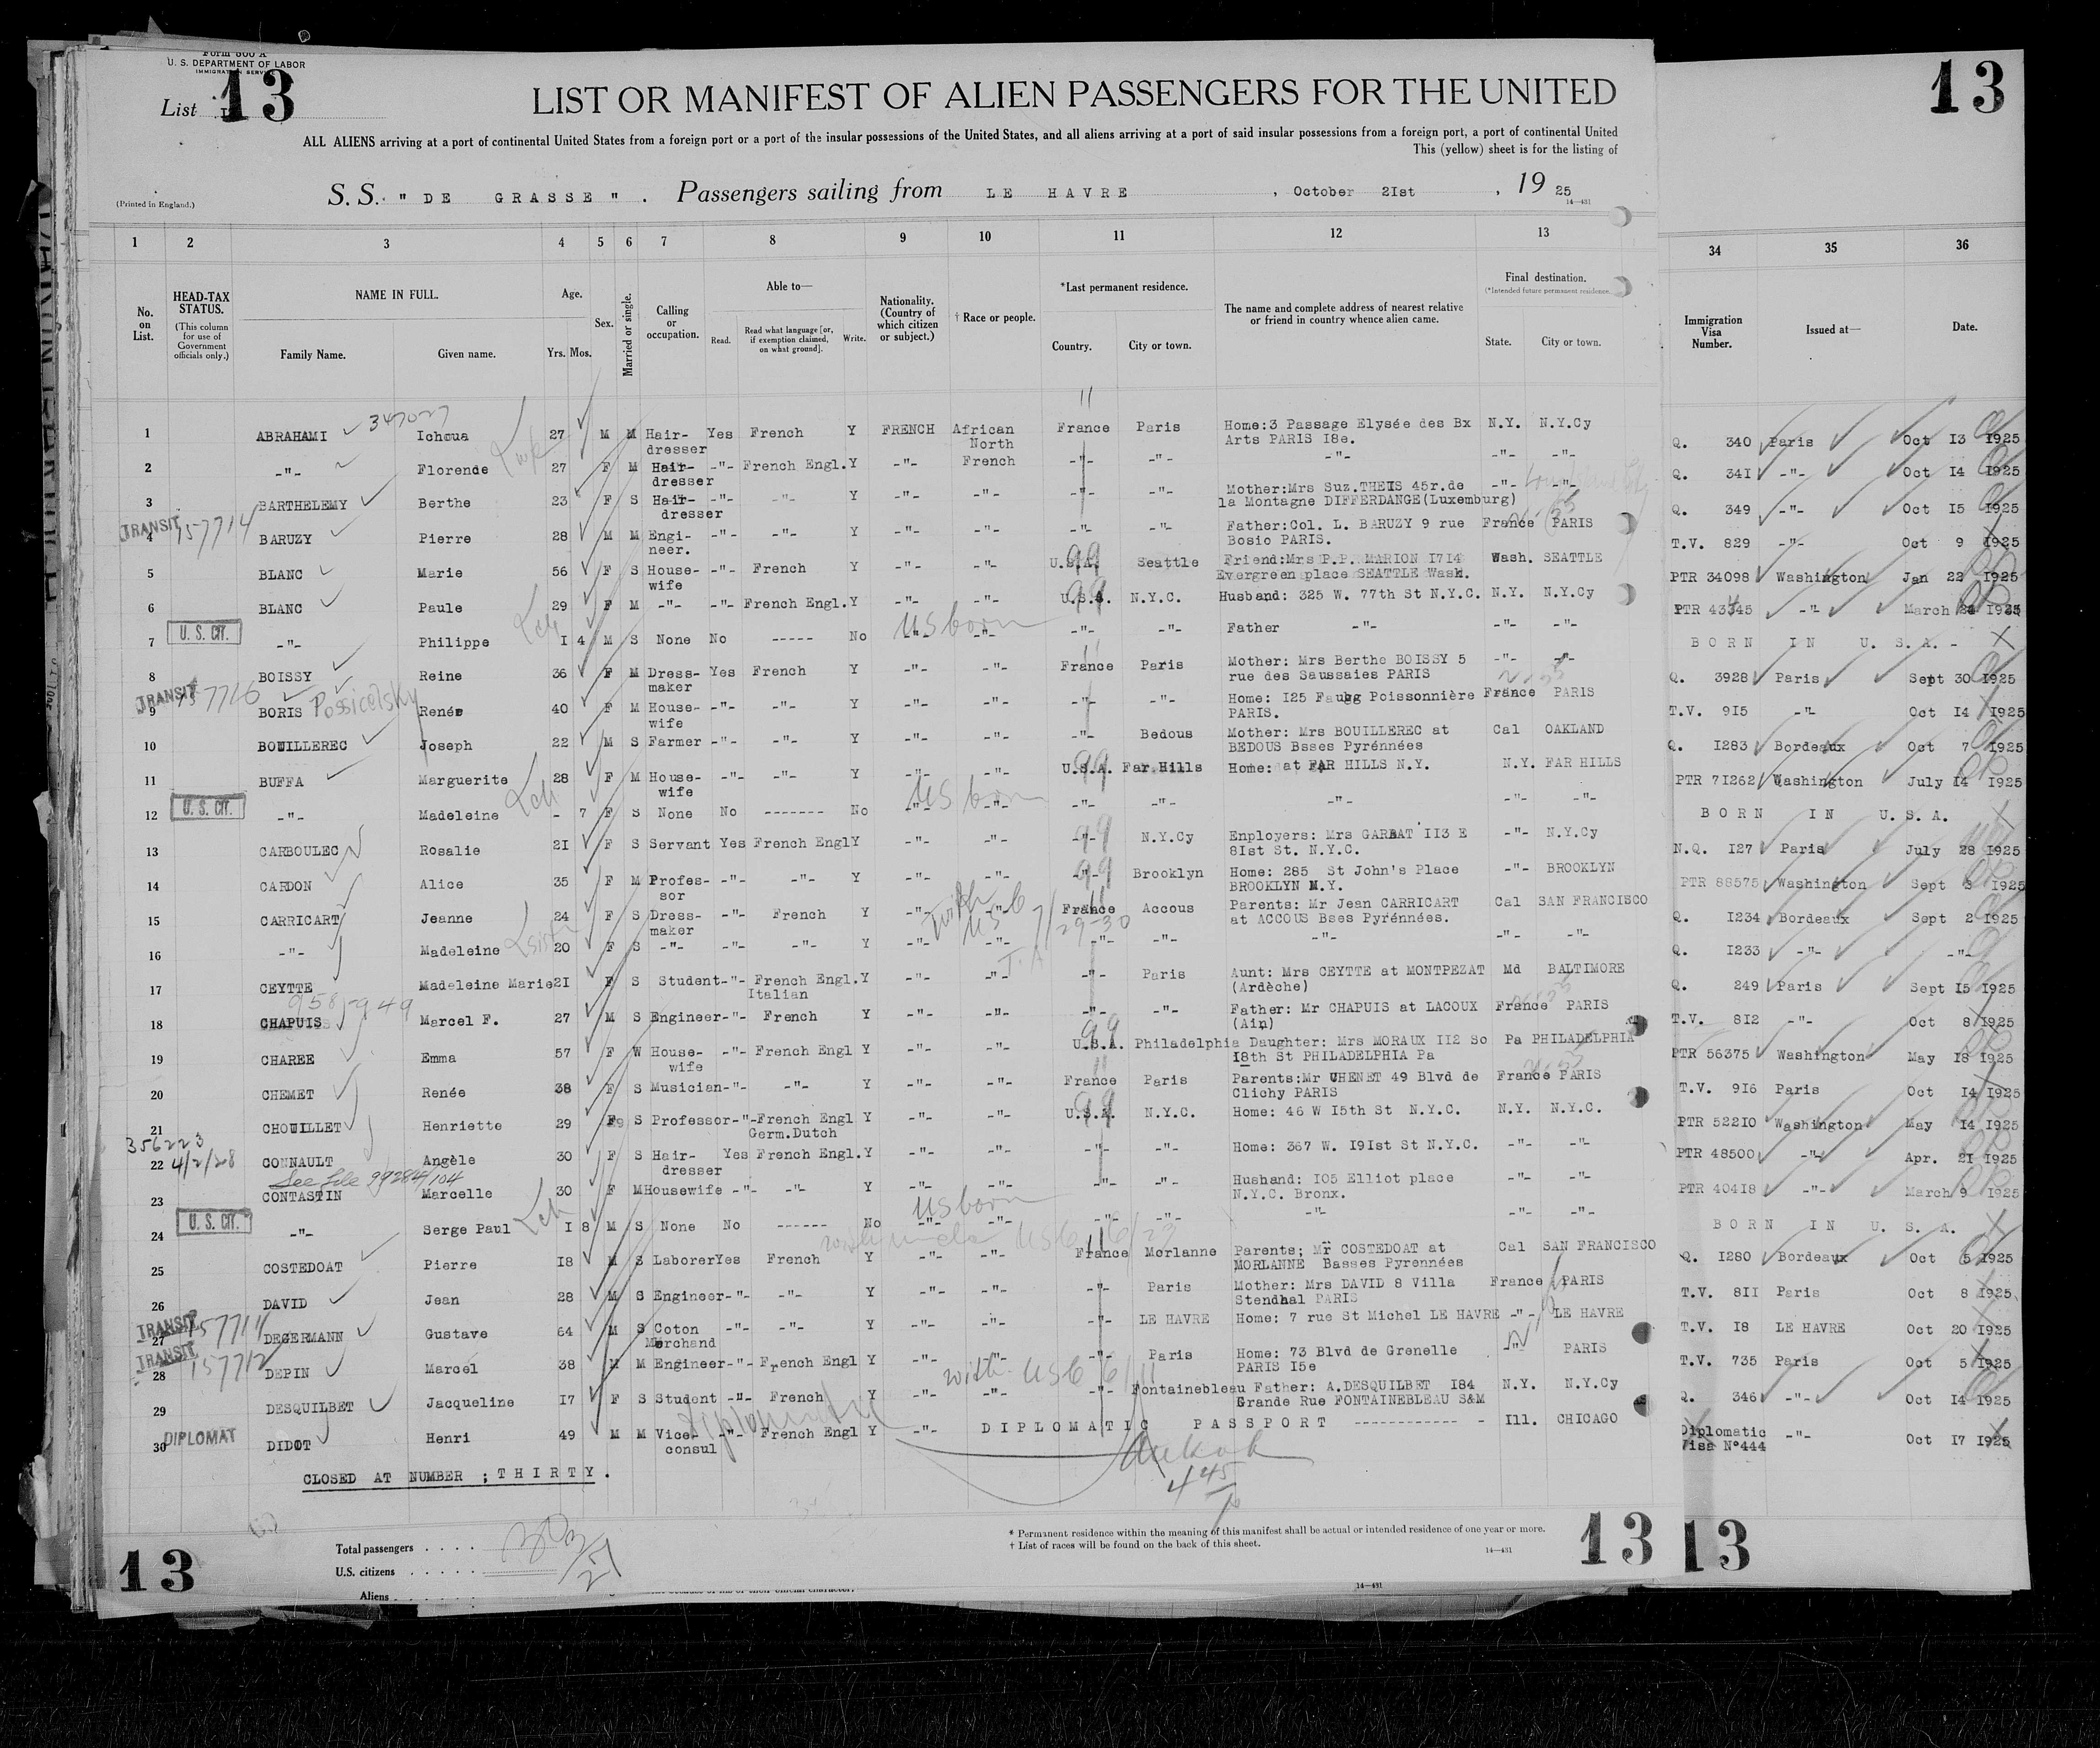 Form 500 A
U. S. DEPARTMENT OF LABOR
IMMIGRATION SERVICE
List 13
13
LIST OR MANIFEST OF ALIEN PASSENGERS FOR THE UNITED
ALL ALIENS arriving at a port of continental United States from a foreign port or a port of the insular possessions of the United States, and all aliens arriving at a port of said insular possessions from a foreign port, a port of continental United
This (yellow) sheet is for the listing of
(Printed in England.)
S. S. " DE GRASSE " . Passengers sailing from LE HAVRE , October 2Ist , 19 25
14—431
1 2 3 4 5 6 7 8 9 10 11 12 13 34 35 36
No. on List.
HEAD-TAX STATUS.
(This column for use of Government officials only.)
NAME IN FULL.
Family Name. Given name.
Age.
Yrs. Mos.
Sex.
Married or single.
Calling or occupation.
Able to—
Read. Read what language [or, if exemption claimed, on what ground]. Write.
Nationality. (Country of which citizen or subject.)
† Race or people.
*Last permanent residence.
Country. City or town.
The name and complete address of nearest relative or friend in country whence alien came.
Final destination.
(*Intended future permanent residence.)
State. City or town.
Immigration Visa Number.
Issued at—
Date.
347027
1 ABRAHAMI Ichoua 27 M M Hair- Yes French Y FRENCH African France Paris Home:3 Passage Elysée des Bx N.Y. N.Y.Cy Q. 340 Paris Oct I3 I925
dresser North Arts PARIS I8e.
2 -"- Florende 27 F M Hair- -"- French Engl. Y -"- French -"- -"- -"- -"- -"- Q. 34I -"- Oct I4 I925
dresser
3 BARTHELEMY Berthe 23 F S Hair- -"- -"- Y -"- -"- -"- -"- Mother:Mrs Suz.THEIS 45r.de -"- -"- Q. 349 -"- Oct I5 I925
dresser la Montagne DIFFERDANGE(Luxemburg)
TRANSIT 157714
4 BARUZY Pierre 28 M M Engi- -"- -"- Y -"- -"- -"- -"- Father:Col. L. BARUZY 9 rue France PARIS T.V. 829 -"- Oct 9 I925
neer. Bosio PARIS.
5 BLANC Marie 56 F S House- -"- French Y -"- -"- U.S.A. Seattle Friend:Mrs P.P. MARION I7I4 Wash. SEATTLE PTR 34098 Washington Jan 22 I925
wife Evergreen place SEATTLE Wash.
6 BLANC Paule 29 F M -"- -"- French Engl. Y -"- -"- U.S.A. N.Y.C. Husband: 325 W. 77th St N.Y.C. N.Y. N.Y.Cy PTR 43345 -"- March I925
U. S. CIT. US born
7 -"- Philippe I 4 M S None No ----- No -"- -"- -"- -"- Father -"- -"- -"- BORN IN U. S. A. -
8 BOISSY Reine 36 F M Dress- Yes French Y -"- -"- France Paris Mother: Mrs Berthe BOISSY 5 -"- -"- Q. 3928 Paris Sept 30 I925
maker rue des Saussaies PARIS
TRANSIT 157716
9 BORIS Possicelsky Renée 40 F M House- -"- -"- Y -"- -"- -"- -"- Home: I25 Faubg Poissonnière France PARIS T.V. 9I5 -"- Oct I4 I925
wife PARIS.
10 BOUILLEREC Joseph 22 M S Farmer -"- -"- Y -"- -"- -"- Bedous Mother: Mrs BOUILLEREC at Cal OAKLAND Q. I283 Bordeaux Oct 7 I925
BEDOUS Bsses Pyrénnées
11 BUFFA Marguerite 28 F M House- -"- -"- Y -"- -"- U.S.A. Far Hills Home: at FAR HILLS N.Y. N.Y. FAR HILLS PTR 7I262 Washington July I4 I925
wife
U. S. CIT. US born
12 -"- Madeleine - 7 F S None No ------- No -"- -"- -"- -"- -"- -"- -"- BORN IN U. S. A.
13 CARBOULEC Rosalie 2I F S Servant Yes French Engl Y -"- -"- -"- N.Y.Cy Employers: Mrs GARBAT II3 E -"- N.Y.Cy N.Q. I27 Paris July 28 I925
8Ist St. N.Y.C.
14 CARDON Alice 35 F M Profes- -"- -"- Y -"- -"- -"- Brooklyn Home: 285 St John's Place -"- BROOKLYN PTR 88575 Washington Sept 3 I925
sor BROOKLYN N.Y.
15 CARRICART Jeanne 24 F S Dress- -"- French Y -"- -"- France Accous Parents: Mr Jean CARRICART Cal SAN FRANCISCO Q. I234 Bordeaux Sept 2 I925
maker at ACCOUS Bses Pyrénnées.
16 -"- Madeleine 20 F S -"- -"- -"- Y -"- -"- -"- -"- -"- -"- -"- Q. I233 -"- -"-
17 CEYTTE Madeleine Marie 2I F S Student -"- French Engl. Y -"- -"- -"- Paris Aunt: Mrs CEYTTE at MONTPEZAT Md BALTIMORE Q. 249 Paris Sept I5 I925
Italian (Ardèche)
18 CHAPUIS Marcel F. 27 M S Engineer -"- French Y -"- -"- -"- -"- Father: Mr CHAPUIS at LACOUX France PARIS T.V. 8I2 -"- Oct 8 I925
(Ain)
19 CHAREE Emma 57 F W House- -"- French Engl Y -"- -"- U.S.A. Philadelphia Daughter: Mrs MORAUX II2 So Pa PHILADELPHIA PTR 56375 Washington May I8 I925
wife I8th St PHILADELPHIA Pa
20 CHEMET Renée 38 F S Musician -"- -"- Y -"- -"- France Paris Parents:Mr CHENET 49 Blvd de France PARIS T.V. 9I6 Paris Oct I4 I925
Clichy PARIS
21 CHOUILLET Henriette 29 F S Professor -"- French Engl Y -"- -"- U.S.A. N.Y.C. Home: 46 W I5th St N.Y.C. N.Y. N.Y.C. PTR 522I0 Washington May I4 I925
Germ.Dutch
356223
4/2/28
22 CONNAULT Angèle 30 F S Hair- Yes French Engl. Y -"- -"- -"- -"- Home: 367 W. I9Ist St N.Y.C. -"- -"- PTR 48500 -"- Apr. 2I I925
dresser
See File 99284/104
23 CONTASTIN Marcelle 30 F M Housewife -"- -"- Y -"- -"- -"- -"- Husband: I05 Elliot place -"- -"- PTR 404I8 -"- March 9 I925
N.Y.C. Bronx.
U. S. CIT. US born
24 -"- Serge Paul I 8 M S None No ------ No -"- -"- -"- -"- -"- -"- -"- BORN IN U. S. A.
25 COSTEDOAT Pierre I8 M S Laborer Yes French Y -"- -"- France Morlanne Parents; Mr COSTEDOAT at Cal SAN FRANCISCO Q. I280 Bordeaux Oct 5 I925
MORLANNE Basses Pyrennées
26 DAVID Jean 28 M S Engineer -"- -"- Y -"- -"- -"- Paris Mother: Mrs DAVID 8 Villa France PARIS T.V. 8II Paris Oct 8 I925
Stendhal PARIS
TRANSIT 157711
27 DEGERMANN Gustave 64 M S Coton -"- -"- Y -"- -"- -"- LE HAVRE Home: 7 rue St Michel LE HAVRE -"- LE HAVRE T.V. I8 LE HAVRE Oct 20 I925
Merchand
TRANSIT 157712
28 DEPIN Marcel 38 M M Engineer -"- French Engl Y -"- -"- -"- Paris Home: 73 Blvd de Grenelle -"- PARIS T.V. 735 Paris Oct 5 I925
PARIS I5e
29 DESQUILBET Jacqueline I7 F S Student -"- French Y -"- -"- Fontainebleau Father: A.DESQUILBET I84 N.Y. N.Y.Cy Q. 346 -"- Oct I4 I925
Grande Rue FONTAINEBLEAU S&M
DIPLOMAT
30 DIDOT Henri 49 M M Vice- -"- French Engl Y -"- DIPLOMATIC PASSPORT ------------ - Ill. CHICAGO Diplomatic -"- Oct I7 I925
consul Visa N°444
CLOSED AT NUMBER ; THIRTY.
Total passengers . . . .
U.S. citizens . . . . .
Aliens . . . .
* Permanent residence within the meaning of this manifest shall be actual or intended residence of one year or more.
† List of races will be found on the back of this sheet.
14—431
13
13
13
14—431